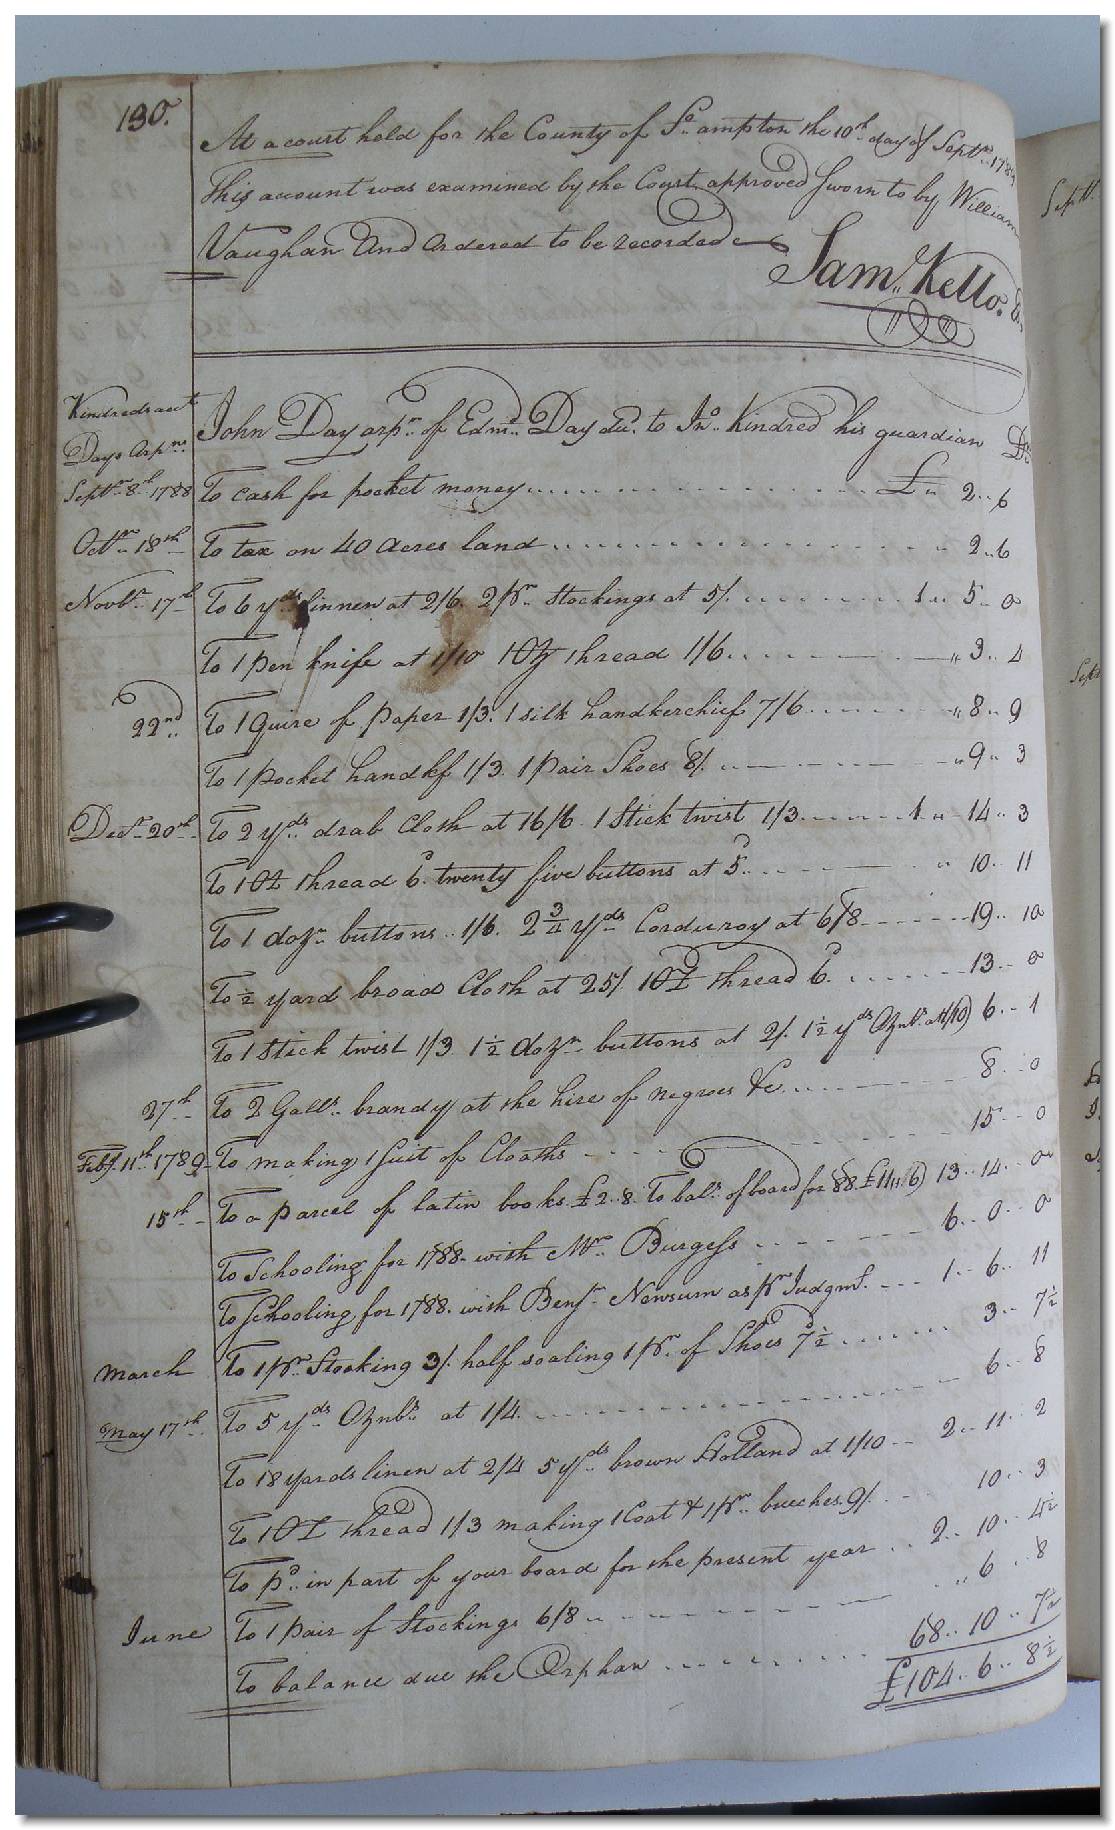 130.
At a court held for the County of So.ampton the 10th day of Septr. 1789
This account was examined by the Court, approved Sworn to by William
Vaughan And ordered to be recorded
Saml. Kello.
Kindredsacct
Days Orpns.
John Day orpn. of Edmd. Day decd. to Jno. Kindred his guardian Dr.
Septr. 8th 1788 To cash for pocket money £ " 2 " 6
Octr. 18th To tax on 40 Acres land 2 " 6
Novbr. 17th To 6 yds linnen at 2/6. 2 pr. stockings at 5/. 1 " 5 " 0
To 1 pen knife at 1/10 1 Oz thread 1/6 " 3 " 4
22nd To 1 Quire of paper 1/3. 1 silk handkerchief 7/6 " 8 " 9
To 1 pocket handkf 1/3. 1 pair Shoes 8/. " 9 " 3
Decr. 20th To 2 yds drab Cloth at 16/6. 1 Stick twist 1/3 1 " 14 " 3
To 1 Oz thread 6. twenty five buttons at 5. " 10 " 11
To 1 dozn buttons 1/6. 2 3/4 yds Corduroy at 6/8 19 " 10
To 1/2 yard broad Cloth at 25/. 1 Oz thread 6. 13 " 0
To 1 Stick twist 1/3 1 1/2 dozn buttons at 2/. 1 1/2 yds Oznbs. at 1/10) 6 " 1
27th To 2 Galls. brandy at the hire of negroes &c 8 " 0
Feby. 11th 1789 To making 1 Suit of Cloaths 15 " 0
15th To a parcel of latin books £2.8. To bale. of board for 88. £11"6) 13 " 14 " 0
To Schooling for 1788. with Mr. Burgess 6 " 0 " 0
To Schooling for 1788. with Benjn. Newsum as pr Judgmt. 1 " 6 " 11
March To 1 pr. Stocking 3/. half soaling 1 pr. of Shoes 7 1/2 3 " 7 1/2
May 17th To 5 yds Oznbs at 1/4. 6 " 8
To 18 yards linen at 2/4 5 yds brown Holland at 1/10 2 " 11 " 2
To 1 Oz thread 1/3 making 1 Coat & 1 pr. breeches 9/. 10 " 3
To pd. in part of your board for the present year 2 " 10 " 4 1/2
June To 1 pair of Stockings 6/8 " 6 " 8
To balance due the Orphan 68 " 10 " 7 1/2
£104 " 6 " 8 1/2
Septr.